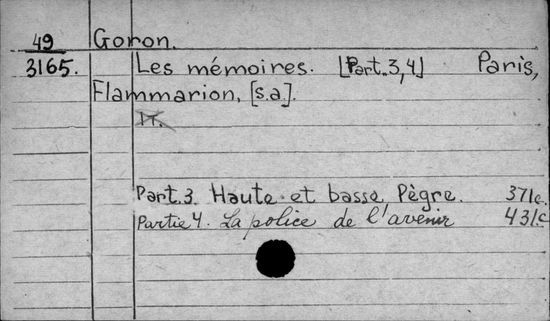 49 Goron.
3165. Les mémoires. [Part. 3,4] Paris,
Flammarion, [s.a.].
Part.3. Haute et basse Pègre. 371c.
Partie 4. La police de l'avenir 431c